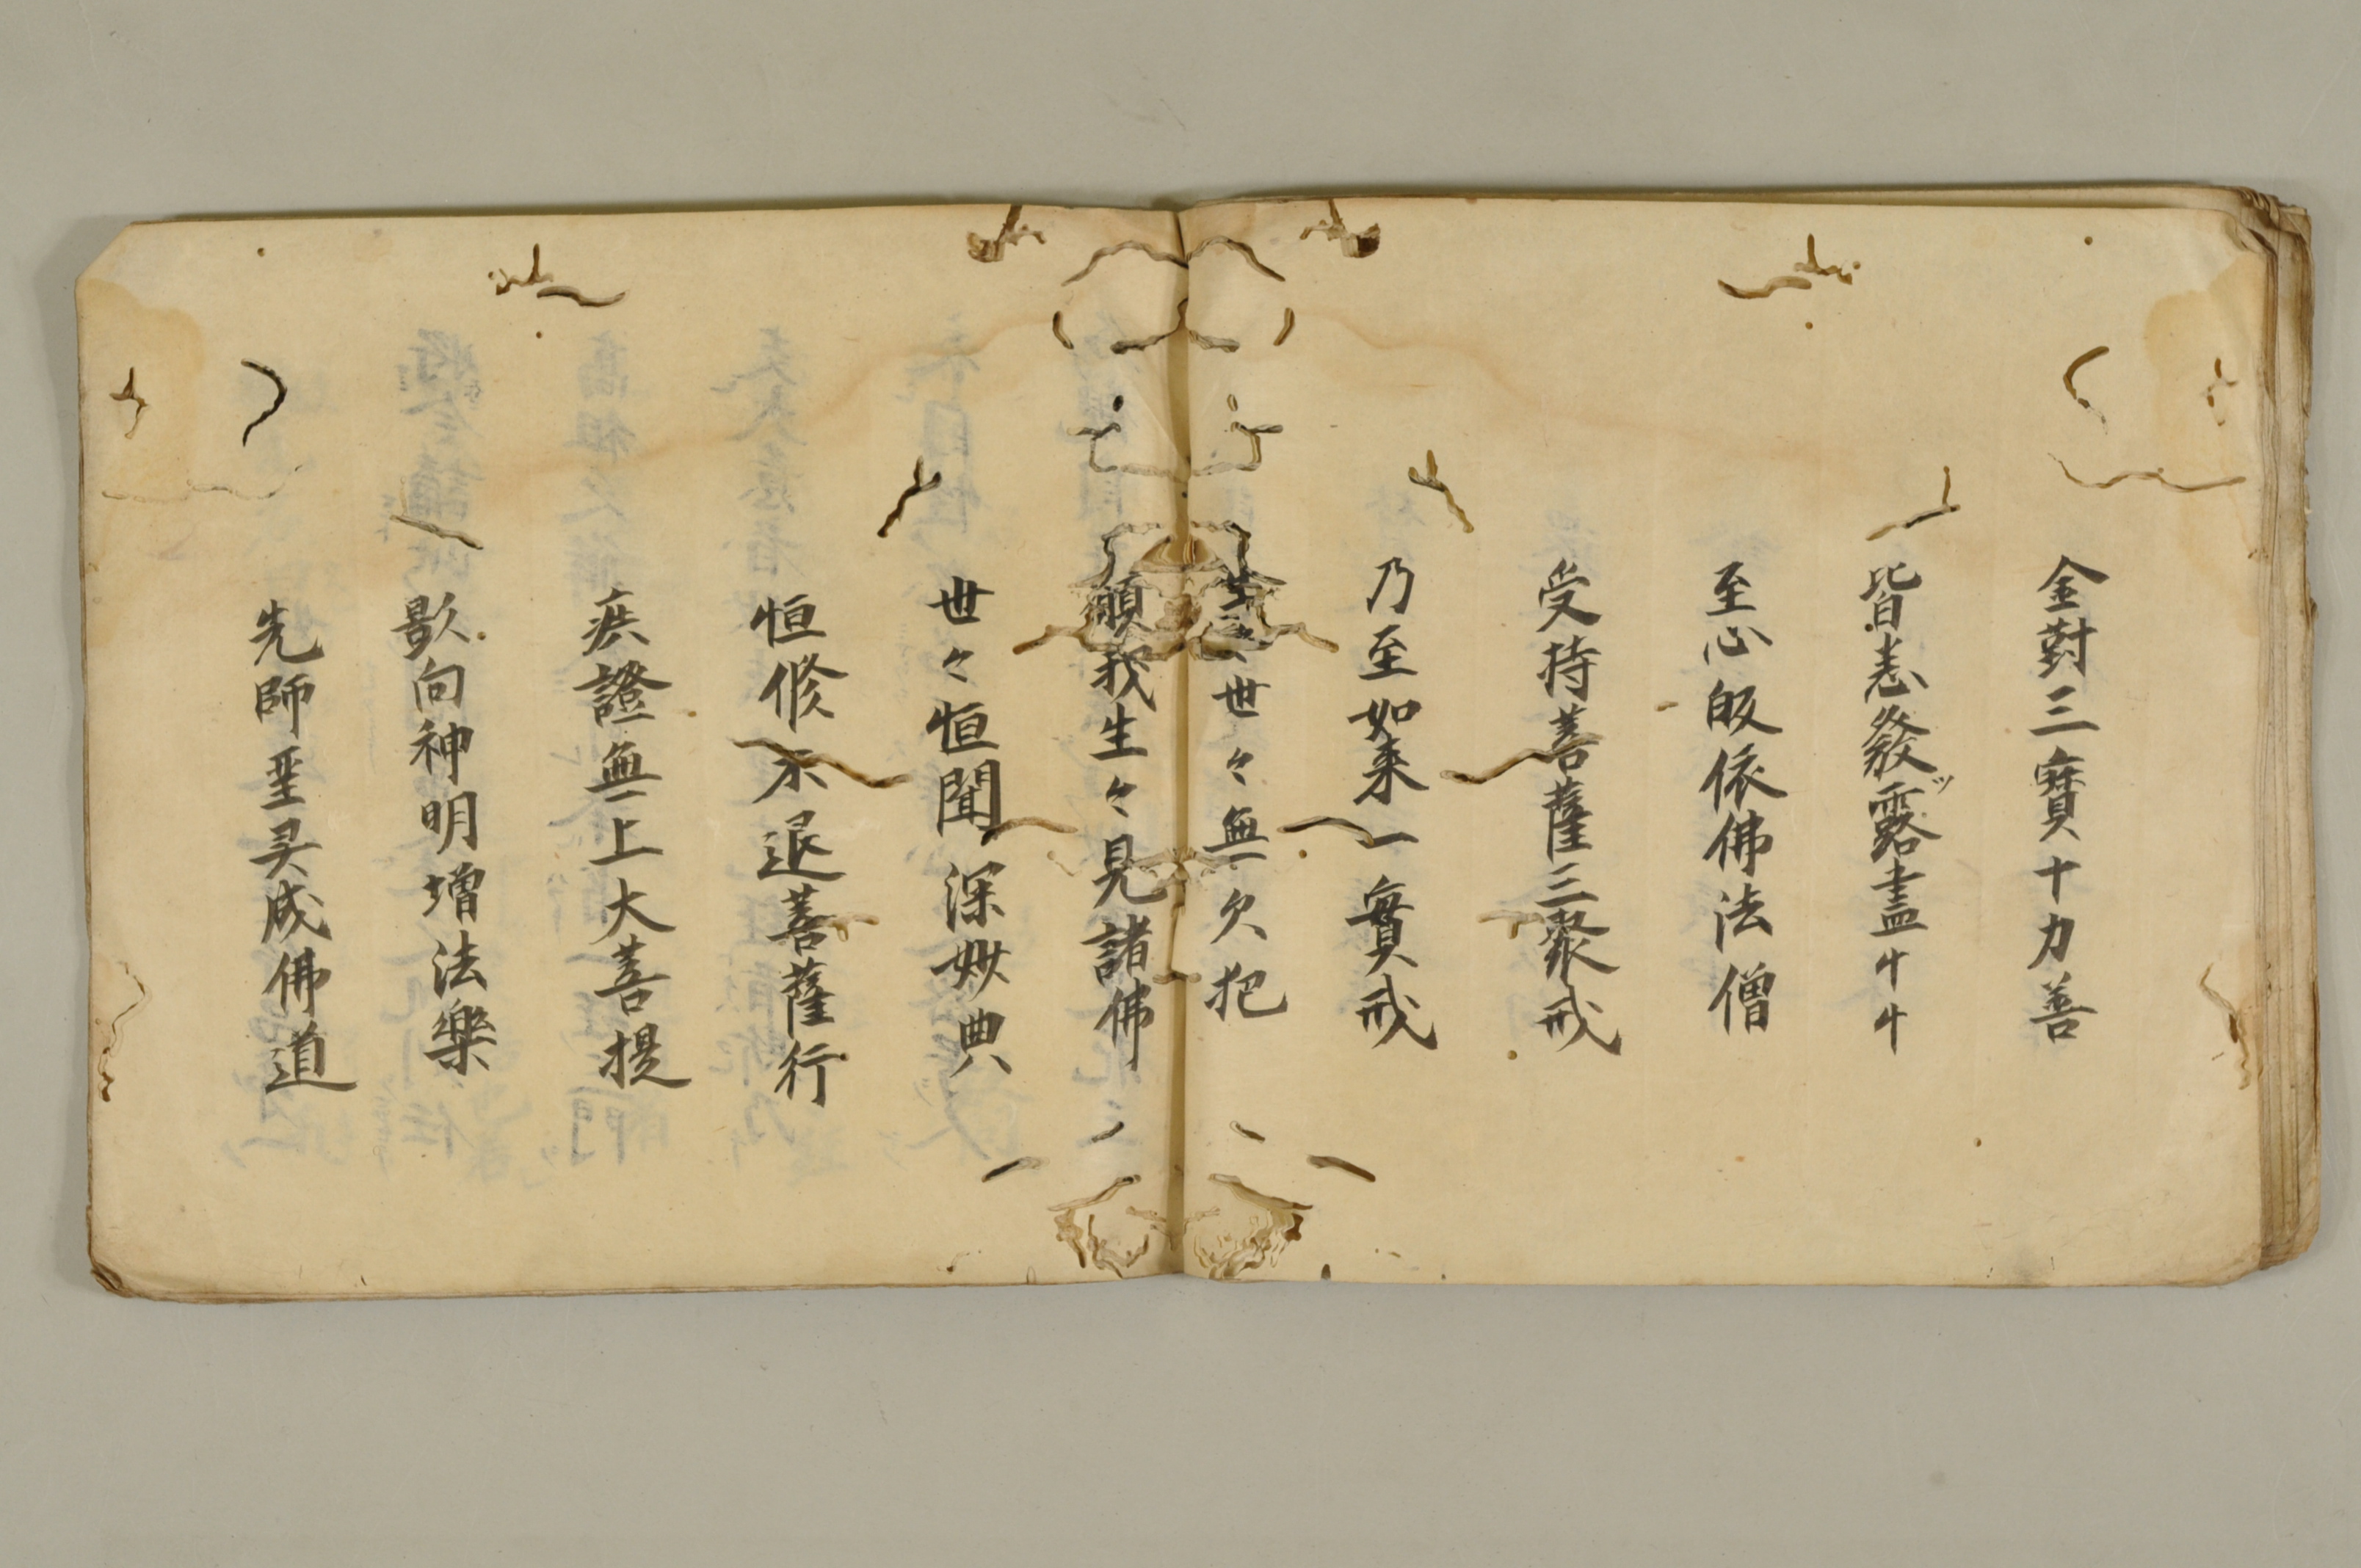 金對三寶十力善
皆恚發露盡
至心皈依佛法僧
受持菩薩三聚戒
乃至如来一實戒
生々世々無欠犯
願我生々見諸佛
世々恒聞深妙典
恒修不退菩薩行
疾證無上大菩提
影向神明増法樂
先師聖灵成佛道